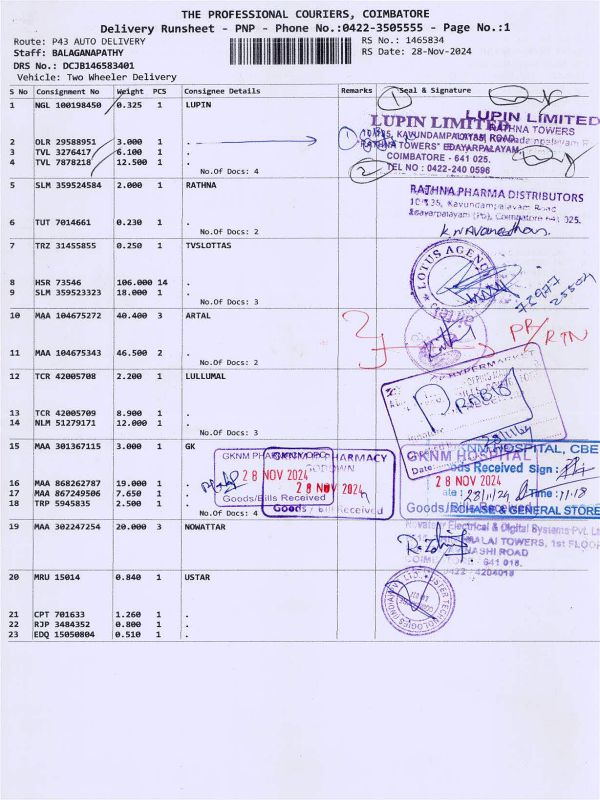 THE PROFESSIONAL COURIERS, COIMBATORE
Delivery Runsheet - PNP - Phone No.:0422-3505555 - Page No.:1
Route: P43 AUTO DELIVERY
RS No.: 1465834
Staff: BALAGANAPATHY
RS Date: 28-Nov-2024
DRS No.: DCJB146583401
Vehicle: Two Wheeler Delivery
S No Consignment No Weight PCS Consignee Details Remarks Seal & Signature
1 NGL 100198450 0.325 1 LUPIN
2 OLR 29588951 3.000 1 .
3 TVL 3276417 6.100 1 .
4 TVL 7878218 12.500 1 .
No.Of Docs: 4
LUPIN LIMITED
LUPIN LIMITED
RATHNA TOWERS
KAVUNDAMPALAYAM ROAD,
"RATHNA TOWERS" EDAYARPALAYAM,
COIMBATORE - 641 025.
TEL NO : 0422-240 0596
5 SLM 359524584 2.000 1 RATHNA
6 TUT 7014661 0.230 1 .
No.Of Docs: 2
RATHNA PHARMA DISTRIBUTORS
Kavundampalayam Road
Edayarpalayam (Po), Coimbatore 641 025.
7 TRZ 31455855 0.250 1 TVSLOTTAS
8 HSR 73546 106.000 14 .
9 SLM 359523323 18.000 1 .
No.Of Docs: 3
LOTUS AGENC
10 MAA 104675272 40.400 3 ARTAL
11 MAA 104675343 46.500 2 .
No.Of Docs: 2
PR/
RTN
12 TCR 42005708 2.200 1 LULLUMAL
13 TCR 42005709 8.900 1 .
14 NLM 51279171 12.000 1 .
No.Of Docs: 3
HYPERMARKET
Date
15 MAA 301367115 3.000 1 GK
16 MAA 868262787 19.000 1 .
17 MAA 867249506 7.650 1 .
18 TRP 5945835 2.500 1 .
No.Of Docs: 4
GKNM PHARMACY
GODOWN
28 NOV 2024
28 NOV 2024
Goods/Bills Received
Goods / Bill Received
GKNM HOSPITAL, CBE
GKNM HOSPITAL
Goods Received Sign :
28 NOV 2024
Date : 28/11/24 Time : 11.18
PURCHASE & GENERAL STORE
19 NOWATTAR MAA 302247254 20.000 3
Novatteur Electrical & Digital Systems Pvt. Lt
MALAI TOWERS, 1st FLOOR
AVINASHI ROAD
COIMBATORE - 641 018.
0422 - 4204018
20 MRU 15014 0.840 1 USTAR
21 CPT 701633 1.260 1 .
22 RJP 3484352 0.800 1 .
23 EDQ 15050804 0.510 1 .
USTER TECHNOLOGIES (INDIA) PVT. LTD.